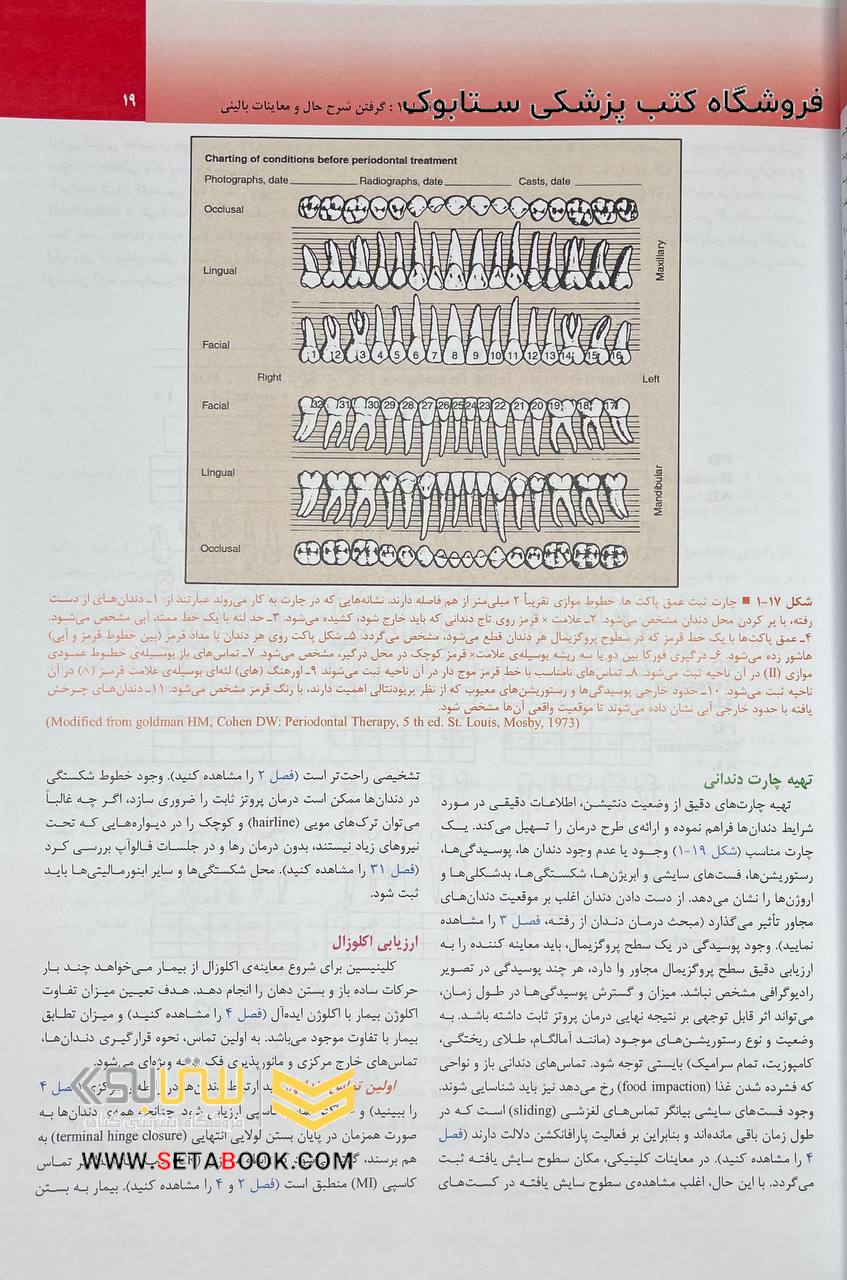 فروشگاه کتب پزشکی ستابوک
۱۹
۱ : گرفتن شرح حال و معاینات بالینی
Charting of conditions before periodontal treatment
Photographs, date Radiographs, date Casts, date
Occlusal
Lingual
Maxillary
Facial
1 2 3 4 5 6 7 8 9 10 11 12 13 14 15 16
Right Left
Facial
32 31 30 29 28 27 26 25 24 23 22 21 20 19 18 17
Lingual
Mandibular
Occlusal
شکل ۱۷-۱ ■ چارت ثبت عمق پاکت ها. خطوط موازی تقریباً ۲ میلی‌متر از هم فاصله دارند. نشانه‌هایی که در چارت به کار می‌روند عبارتند از: ۱ـ دندان‌های از دست
رفته، با پر کردن محل دندان مشخص می‌شود. ۲ـ علامت × قرمز روی تاج دندانی که باید خارج شود، کشیده می‌شود. ۳ـ حد لثه با یک خط ممتد آبی مشخص می‌شود.
۴ـ عمق پاکت‌ها با یک خط قرمز که در سطوح پروگزیمال هر دندان قطع می‌شود، مشخص می‌گردد. ۵ـ شکل پاکت روی هر دندان با مداد قرمز (بین خطوط قرمز و آبی)
هاشور زده می‌شود. ۶ـ درگیری فورکا بین دو یا سه ریشه بوسیله‌ی علامت× قرمز کوچک در محل درگیر، مشخص می‌شود. ۷ـ تماس‌های باز بوسیله‌ی خطوط عمودی
موازی (II) در آن ناحیه ثبت می‌شود. ۸ـ تماس‌های نامناسب با خط قرمز موج دار در آن ناحیه ثبت می‌شوند ۹ـ اورهنگ (های) لثه‌ای بوسیله‌ی علامت قرمز (۸) در آن
ناحیه ثبت می‌شود. ۱۰ـ حدود خارجی پوسیدگی‌ها و رستوریشن‌های معیوب که از نظر پریودنتالی اهمیت دارند، با رنگ قرمز مشخص می‌شود. ۱۱ـ دندان‌های چرخش
یافته با حدود خارجی آبی نشان داده می‌شوند تا موقعیت واقعی آن‌ها مشخص شود.
(Modified from goldman HM, Cohen DW: Periodontal Therapy, 5 th ed. St. Louis, Mosby, 1973)
تهیه چارت دندانی
تهیه چارت‌های دقیق از وضعیت دنتیشن، اطلاعات دقیقی در مورد
شرایط دندان‌ها فراهم نموده و ارائه‌ی طرح درمان را تسهیل می‌کند. یک
چارت مناسب (شکل ۱۹-۱) وجود یا عدم وجود دندان ها، پوسیدگی‌ها،
رستوریشن‌ها، فست‌های سایشی و ابریژن‌ها، شکستگی‌ها، بدشکلی‌ها و
اروژن‌ها را نشان می‌دهد. از دست دادن دندان اغلب بر موقعیت دندان‌های
مجاور تأثیر می‌گذارد (مبحث درمان دندان از رفته، فصل ۳ را مشاهده
نمایید). وجود پوسیدگی در یک سطح پروگزیمال، باید معاینه کننده را به
ارزیابی دقیق سطح پروگزیمال مجاور وا دارد، هر چند پوسیدگی در تصویر
رادیوگرافی مشخص نباشد. میزان و گسترش پوسیدگی‌ها در طول زمان،
می‌تواند اثر قابل توجهی بر نتیجه نهایی درمان پروتز ثابت داشته باشد. به
وضعیت و نوع رستوریشن‌های موجود (مانند آمالگام، طلای ریختگی،
کامپوزیت، تمام سرامیک) بایستی توجه شود. تماس‌های دندانی باز و نواحی
که فشرده شدن غذا (food impaction) رخ می‌دهد نیز باید شناسایی شوند.
وجود فست‌های سایشی بیانگر تماس‌های لغزشی (sliding) است که در
طول زمان باقی مانده‌اند و بنابراین بر فعالیت پارافانکشن دلالت دارند (فصل
۴ را مشاهده کنید). در معاینات کلینیکی، مکان سطوح سایش یافته ثبت
می‌گردد. با این حال، اغلب مشاهده‌ی سطوح سایش یافته در کست‌های
تشخیصی راحت‌تر است (فصل ۲ را مشاهده کنید). وجود خطوط شکستگی
در دندان‌ها ممکن است درمان پروتز ثابت را ضروری سازد، اگر چه غالباً
می‌توان ترک‌های مویی (hairline) و کوچک را در دیواره‌هایی که تحت
نیروهای زیاد نیستند، بدون درمان رها و در جلسات فالوآپ بررسی کرد
(فصل ۳۱ را مشاهده کنید). محل شکستگی‌ها و سایر ابنورمالیتی‌ها باید
ثبت شود.
ارزیابی اکلوزال
کلینیسین برای شروع معاینه‌ی اکلوزال از بیمار می‌خواهد چند بار
حرکات ساده باز و بستن دهان را انجام دهد. هدف تعیین میزان تفاوت
اکلوژن بیمار با اکلوژن ایده‌آل (فصل ۴ را مشاهده کنید) و میزان تطابق
بیمار با تفاوت موجود می‌باشد. به اولین تماس، نحوه قرارگیری دندان‌ها،
تماس‌های خارج مرکزی و مانورپذیری فک ویژه‌ای می‌شود.
اولین تماس ارتباط دندان‌ها در مرکزی (فصل ۴
را ببینید) و ارزیابی شود. چنانچه همه‌ی دندان‌ها به
صورت همزمان در پایان بستن لولایی انتهایی (terminal hinge closure) به
هم برسند، تماس
کاسپی (MI) منطبق است (فصل ۲ و ۴ را مشاهده کنید). بیمار به بستن
ستابوک
WWW.SETABOOK.COM